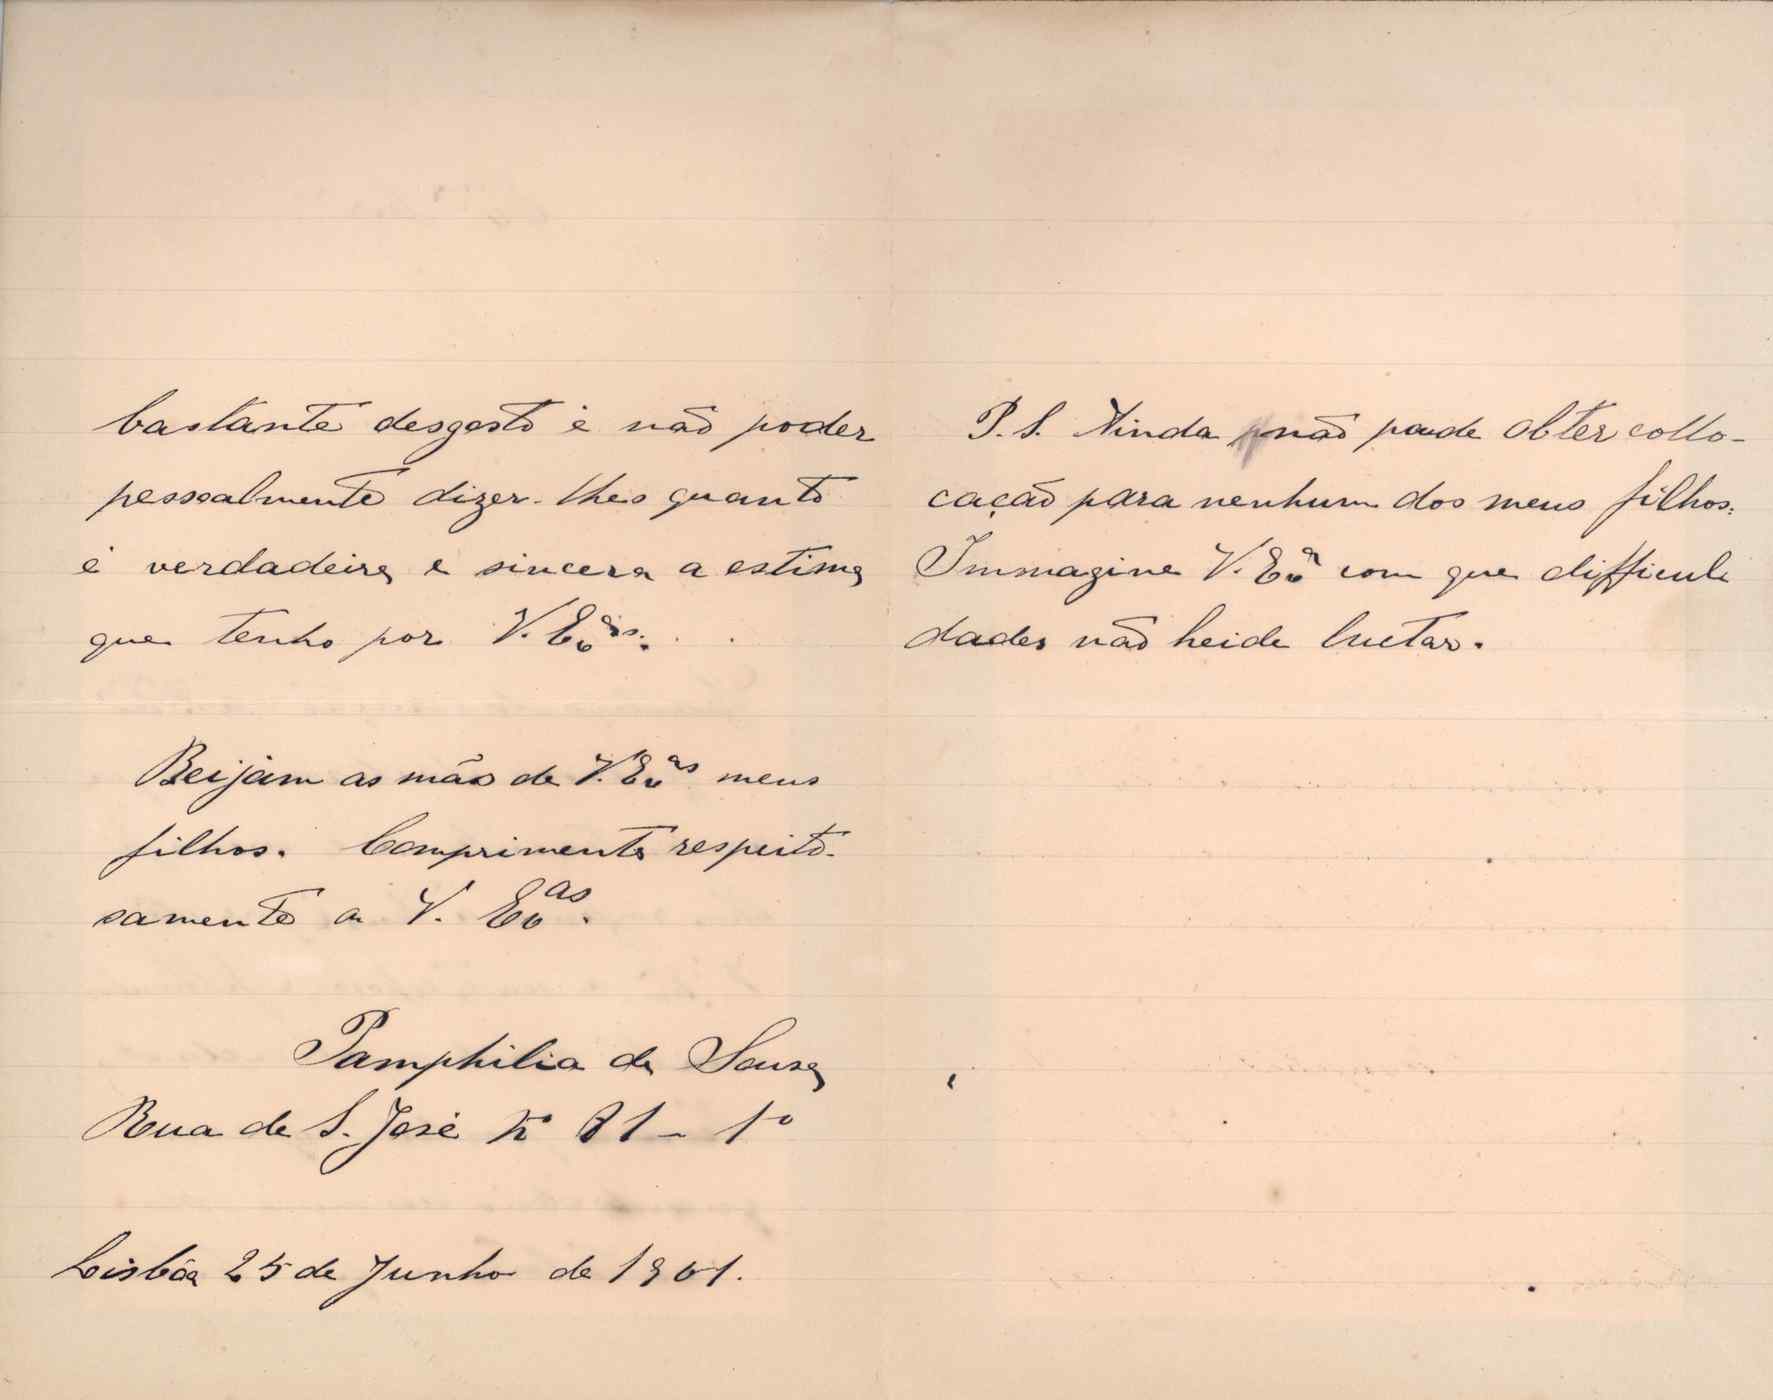 bastante desgosto é não poder
pessoalmente dizer-lhes quanto
é verdadeira e sincera a estima
que tenho por V. Exªs. . .
Beijam as mãos de V. Exas meus
filhos. Comprimenta respeito-
samente a V. Exas.
Pamphilia de Sousa
Rua de S. José Nº 81 - 1º
Lisbôa 25 de Junho de 1901.
P. S. Ainda não poude obter collo-
cação para nenhum dos meus filhos.
Immagine V. Exª com que difficul
dades não heide luctar.